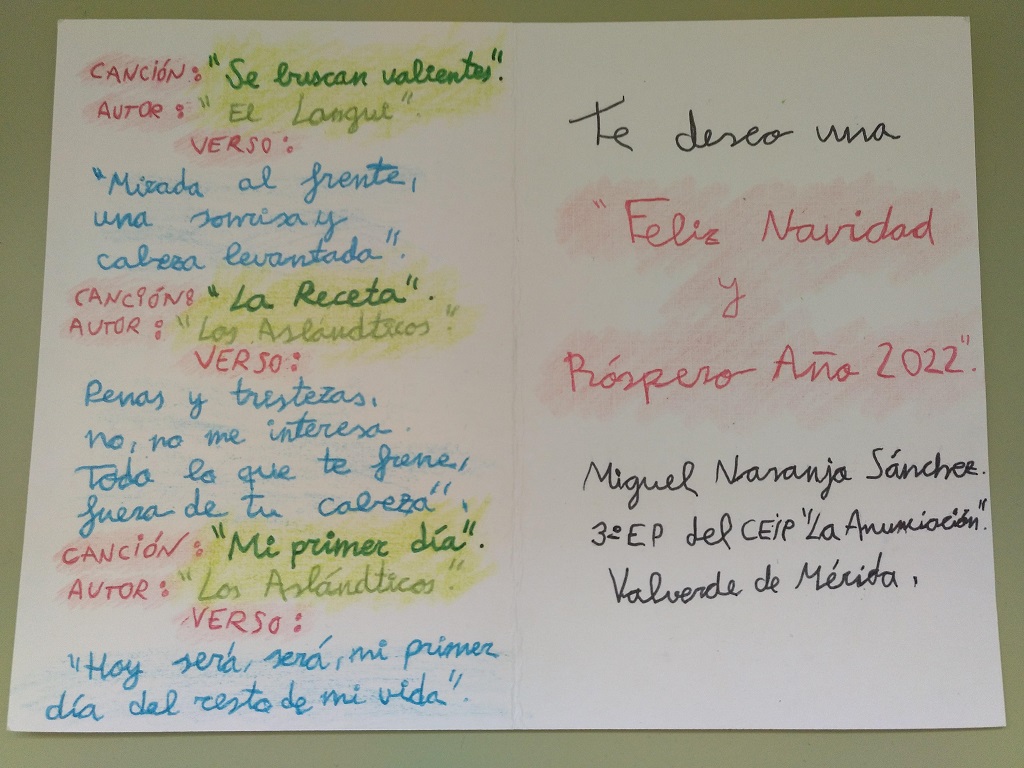 CANCIÓN: "Se buscan valientes".
AUTOR: "El Langui".
VERSO:
"Mirada al frente,
una sonrisa y
cabeza levantada".
CANCIÓN: "La Receta".
AUTOR: "Los Aslándticos".
VERSO:
Penas y tristezas,
no, no me interesa.
Todo lo que te frene,
fuera de tu cabeza",
CANCIÓN: "Mi primer día".
AUTOR: "Los Aslándticos".
VERSO:
"Hoy será, será, mi primer
día del resto de mi vida".
Te deseo una
"Feliz Navidad
y
Próspero Año 2022".
Miguel Naranjo Sánchez.
3º EP del CEIP "La Anunciación".
Valverde de Mérida,